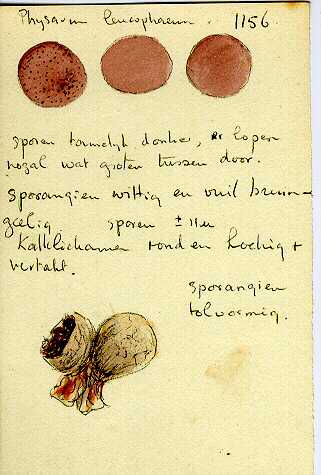 Physarum leucophaeum. 1156
sporen tamelijk donker, er lopen
nogal wat groten tussen door.
sporangien wittig en vuil bruin-
geelig. sporen ± 11 µ
Kalklichamen rond en hoekig +
vertakt.
sporangien
tolvormig.